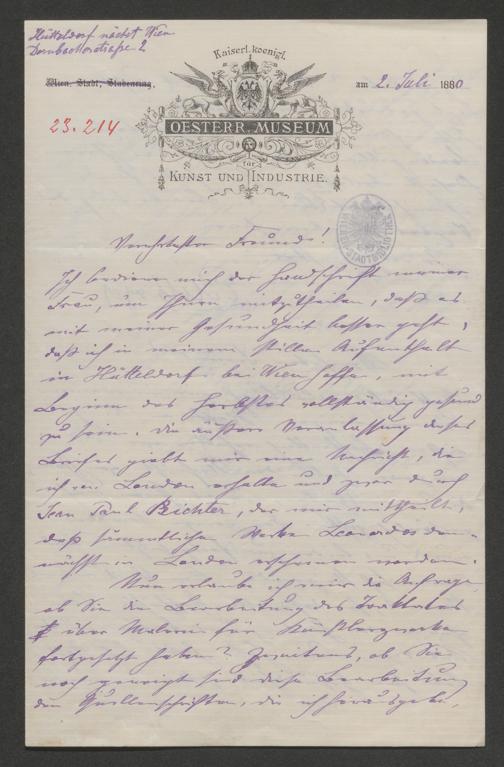 Hütteldorf nächst Wien
Dornbacherstraße 2
Kaiserl. koenigl.
Wien, Stadt, Stubenring.
am 2. Juli 1880
23.214
OESTERR. MUSEUM
für
KUNST UND INDUSTRIE.
Verehrtester Freund!
Ich bediene mich der Handschrift meiner
Frau, um Ihnen mitzutheilen, daß es
mit meiner Gesundheit besser geht,
daß ich in meinem stillen Aufenthalt
in Hütteldorf bei Wien hoffe, mit
Beginn des Herbstes vollständig gesund
zu sein. Die äußere Veranlassung dieses
Briefes giebt mir eine Nachricht, die
ich von London erhalte und zwar durch
Jean Paul Richter, der mir mittheilt,
daß sämmtliche Werke Leonardos dem-
nächst in London erscheinen werden.
Nun erlaube ich mir die Anfrage,
ob Sie die Bearbeitung des Traktates
über Malerei für Künstlerzwecke
fortgesetzt haben? Zweitens, ob Sie
noch geneigt sind diese Bearbeitung
den Quellenschriften, die ich herausgebe,